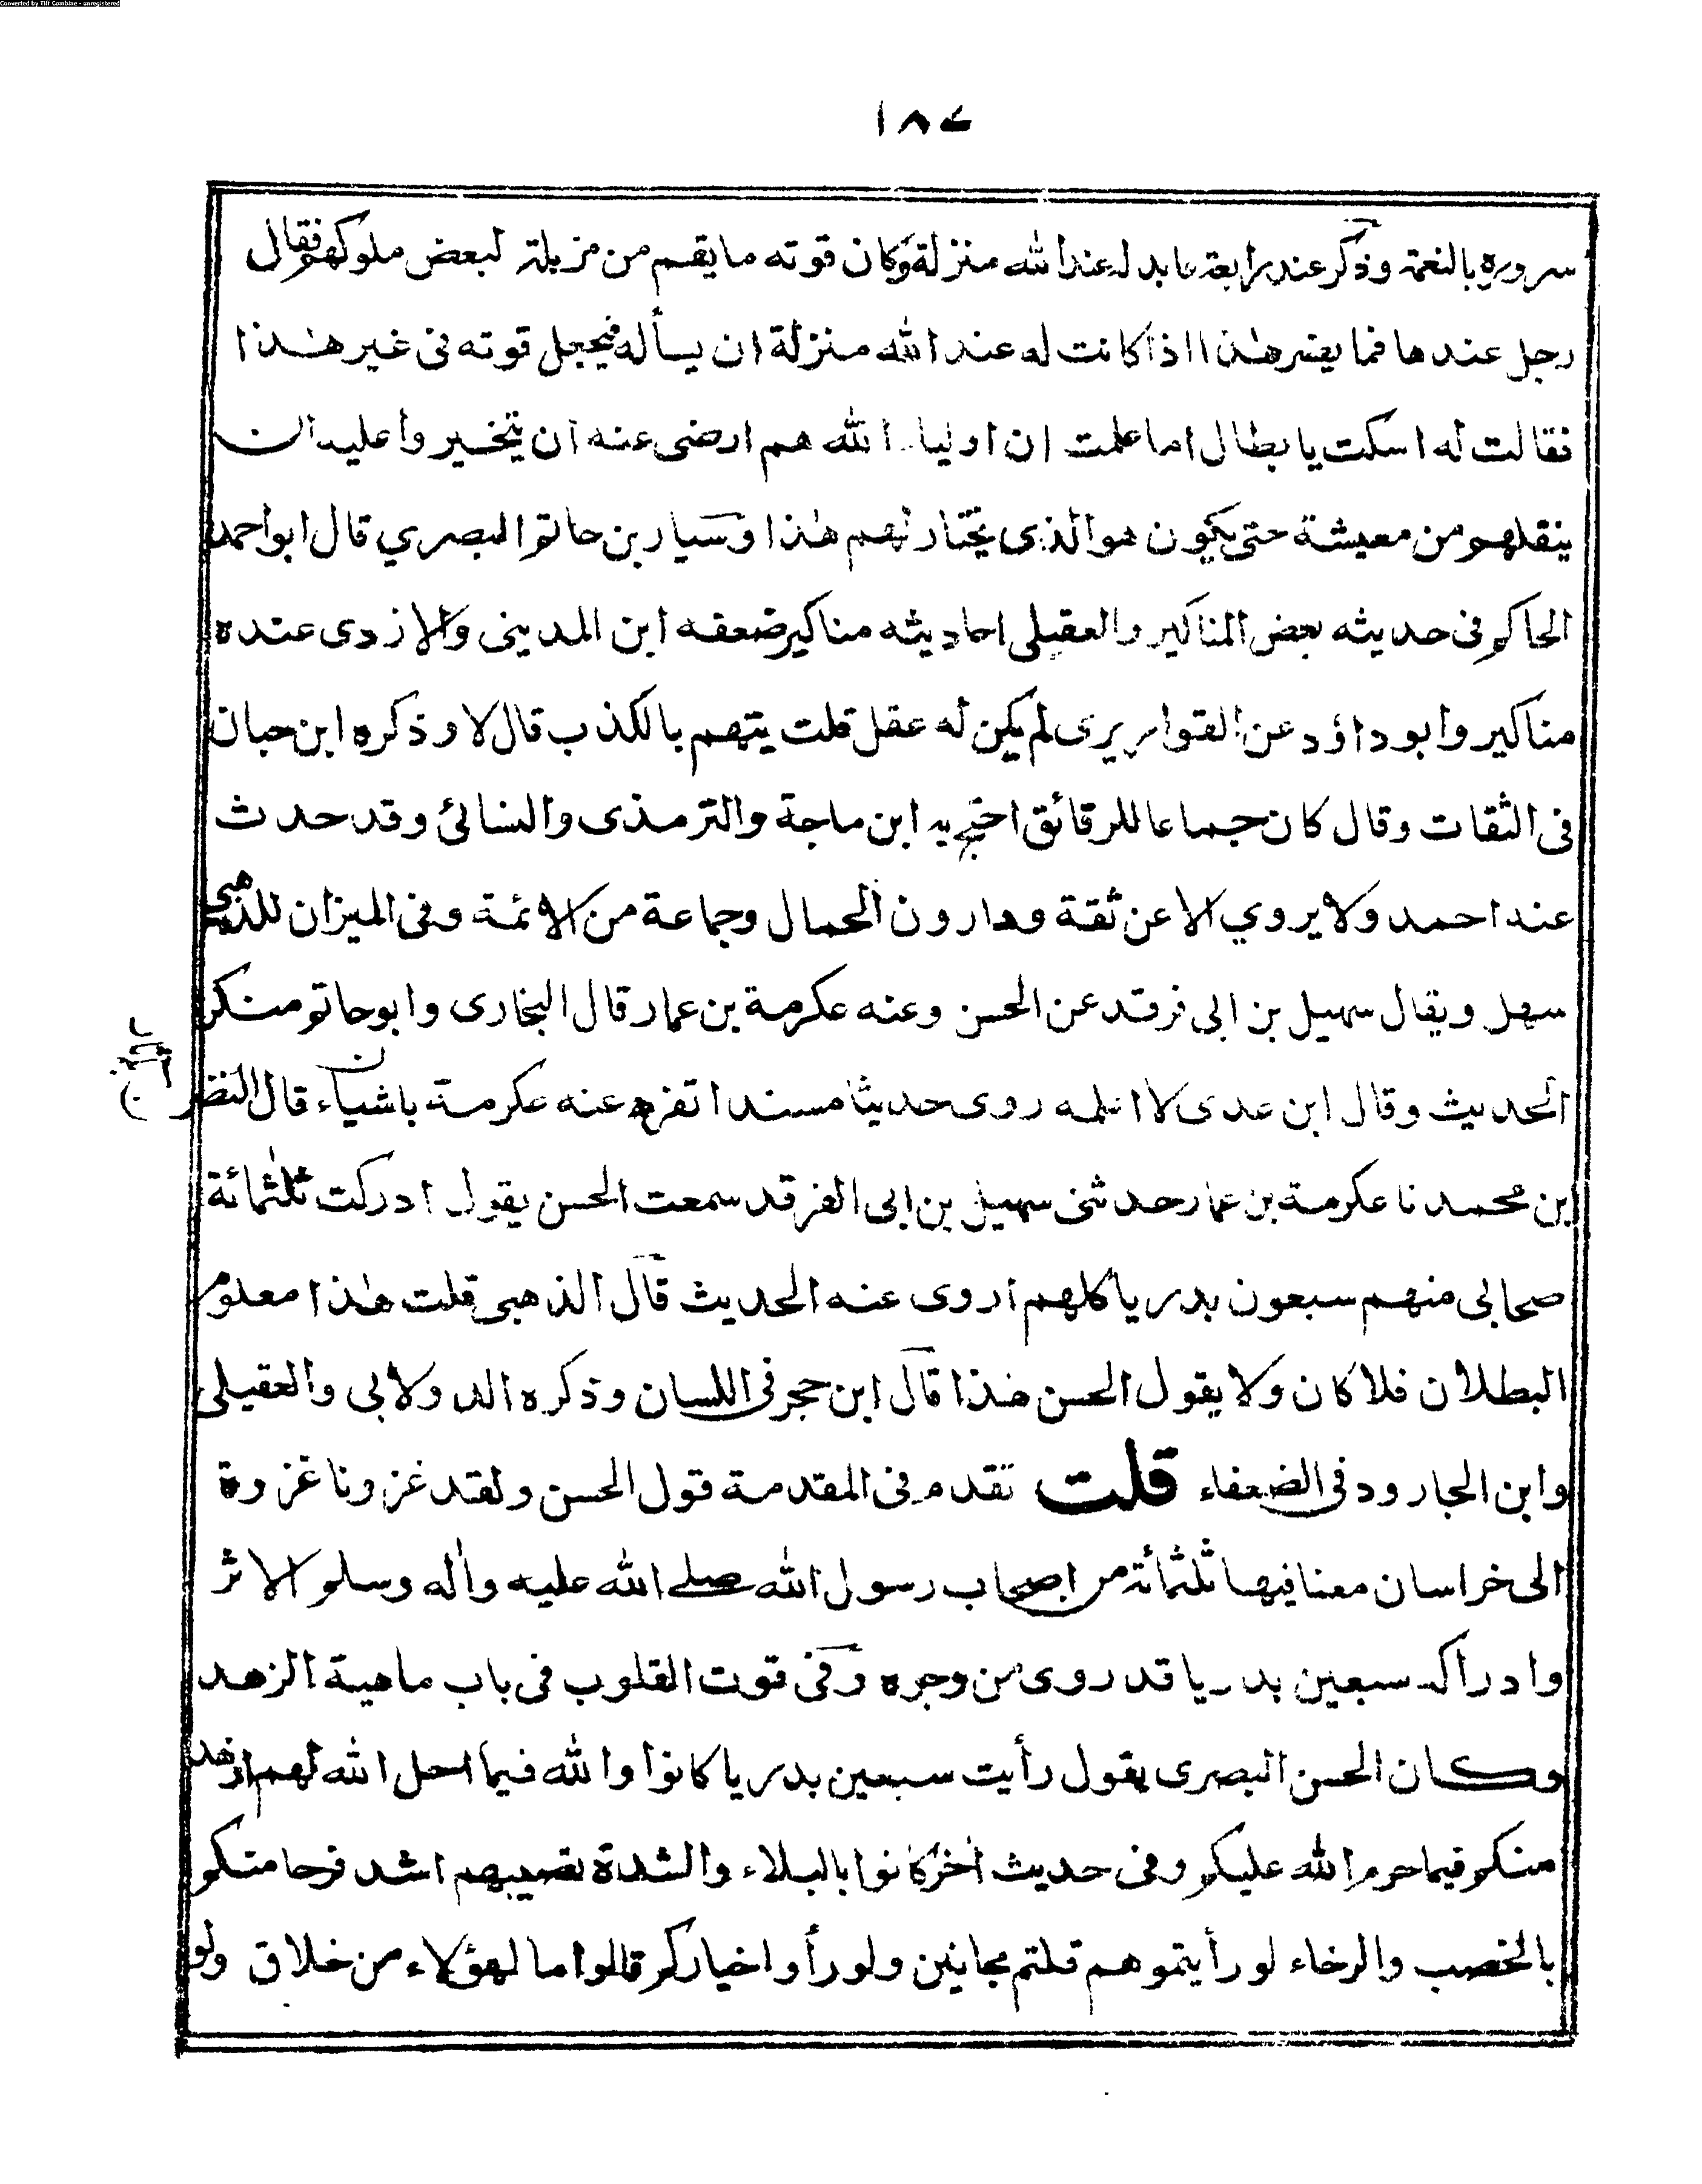 Converted by Tiff Combine - unregistered
١٨٧
سروره بالنعمة وذكر عند رابعة عابد له عند الله منزلة وكان قوته ما يقمم من مزبلة لبعض ملوكهم فقال
رجل عندها فما يضر هذا اذا كانت له عند الله منزلة ان يسأله فيجعل قوته فى غير هذا
فقالت له اسكت يا بطال اما علمت ان اولياء الله هم ارضى عنه ان يتخيروا عليه ان
ينقلهم من معيشة حتى يكون هو الذى يختار لهم هذا وسيار بن حاتم البصري قال ابو احمد
الحاكم فى حديثه بعض المناكير والعقيلى احاديثه مناكير ضعفه ابن المدينى والازدى عنده
مناكير وابو داؤد عن القواريرى لم يكن له عقل قلت يتهم بالكذب قال لا وذكره ابن حبان
فى الثقات وقال كان جماعا للرقائق احتج به ابن ماجة والترمذى والنسائى وقد حدث
عنه احمد ولا يروي الا عن ثقة وهارون الحمال وجماعة من الائمة وفى الميزان للذهبى
سهل ويقال سهيل بن ابى فرقد عن الحسن وعنه عكرمة بن عمار قال البخارى وابو حاتم منكر
الحديث وقال ابن عدى لا اعلمه روى حديثا مسندا تفرد عنه عكرمة باشياء قال النضر
ابن محمد نا عكرمة بن عمار حدثنى سهيل بن ابى الفرقد سمعت الحسن يقول ادركت ثلثمائة
صحابى منهم سبعون بدريا كلهم اروى عنه الحديث قال الذهبى قلت هذا معلوم
البطلان فلا كان ولا يقول الحسن هذا قال ابن حجر فى اللسان وذكره الدولابى والعقيلى
وابن الجارود فى الضعفاء قلت تقدم فى المقدمة قول الحسن ولقد غزونا غزوة
الى خراسان معنا فيها ثلثمائة من اصحاب رسول الله صلے الله عليه وأله وسلم الاثر
وادراكه سبعين بدريا قد روى من وجوه وفى قوت القلوب فى باب ماهية الزهد
وكان الحسن البصرى يقول رأيت سبعين بدريا كانوا والله فيما احل الله لهم ازهد
منكم فيما حرم الله عليكم وفى حديث أخر كانوا بالبلاء والشدة تصيبهم اشد فرحا منكم
بالخصب والرخاء لو رأيتموهم قلتم مجانين ولو رأوا خياركم قالوا ما لهؤلاء من خلاق ولو